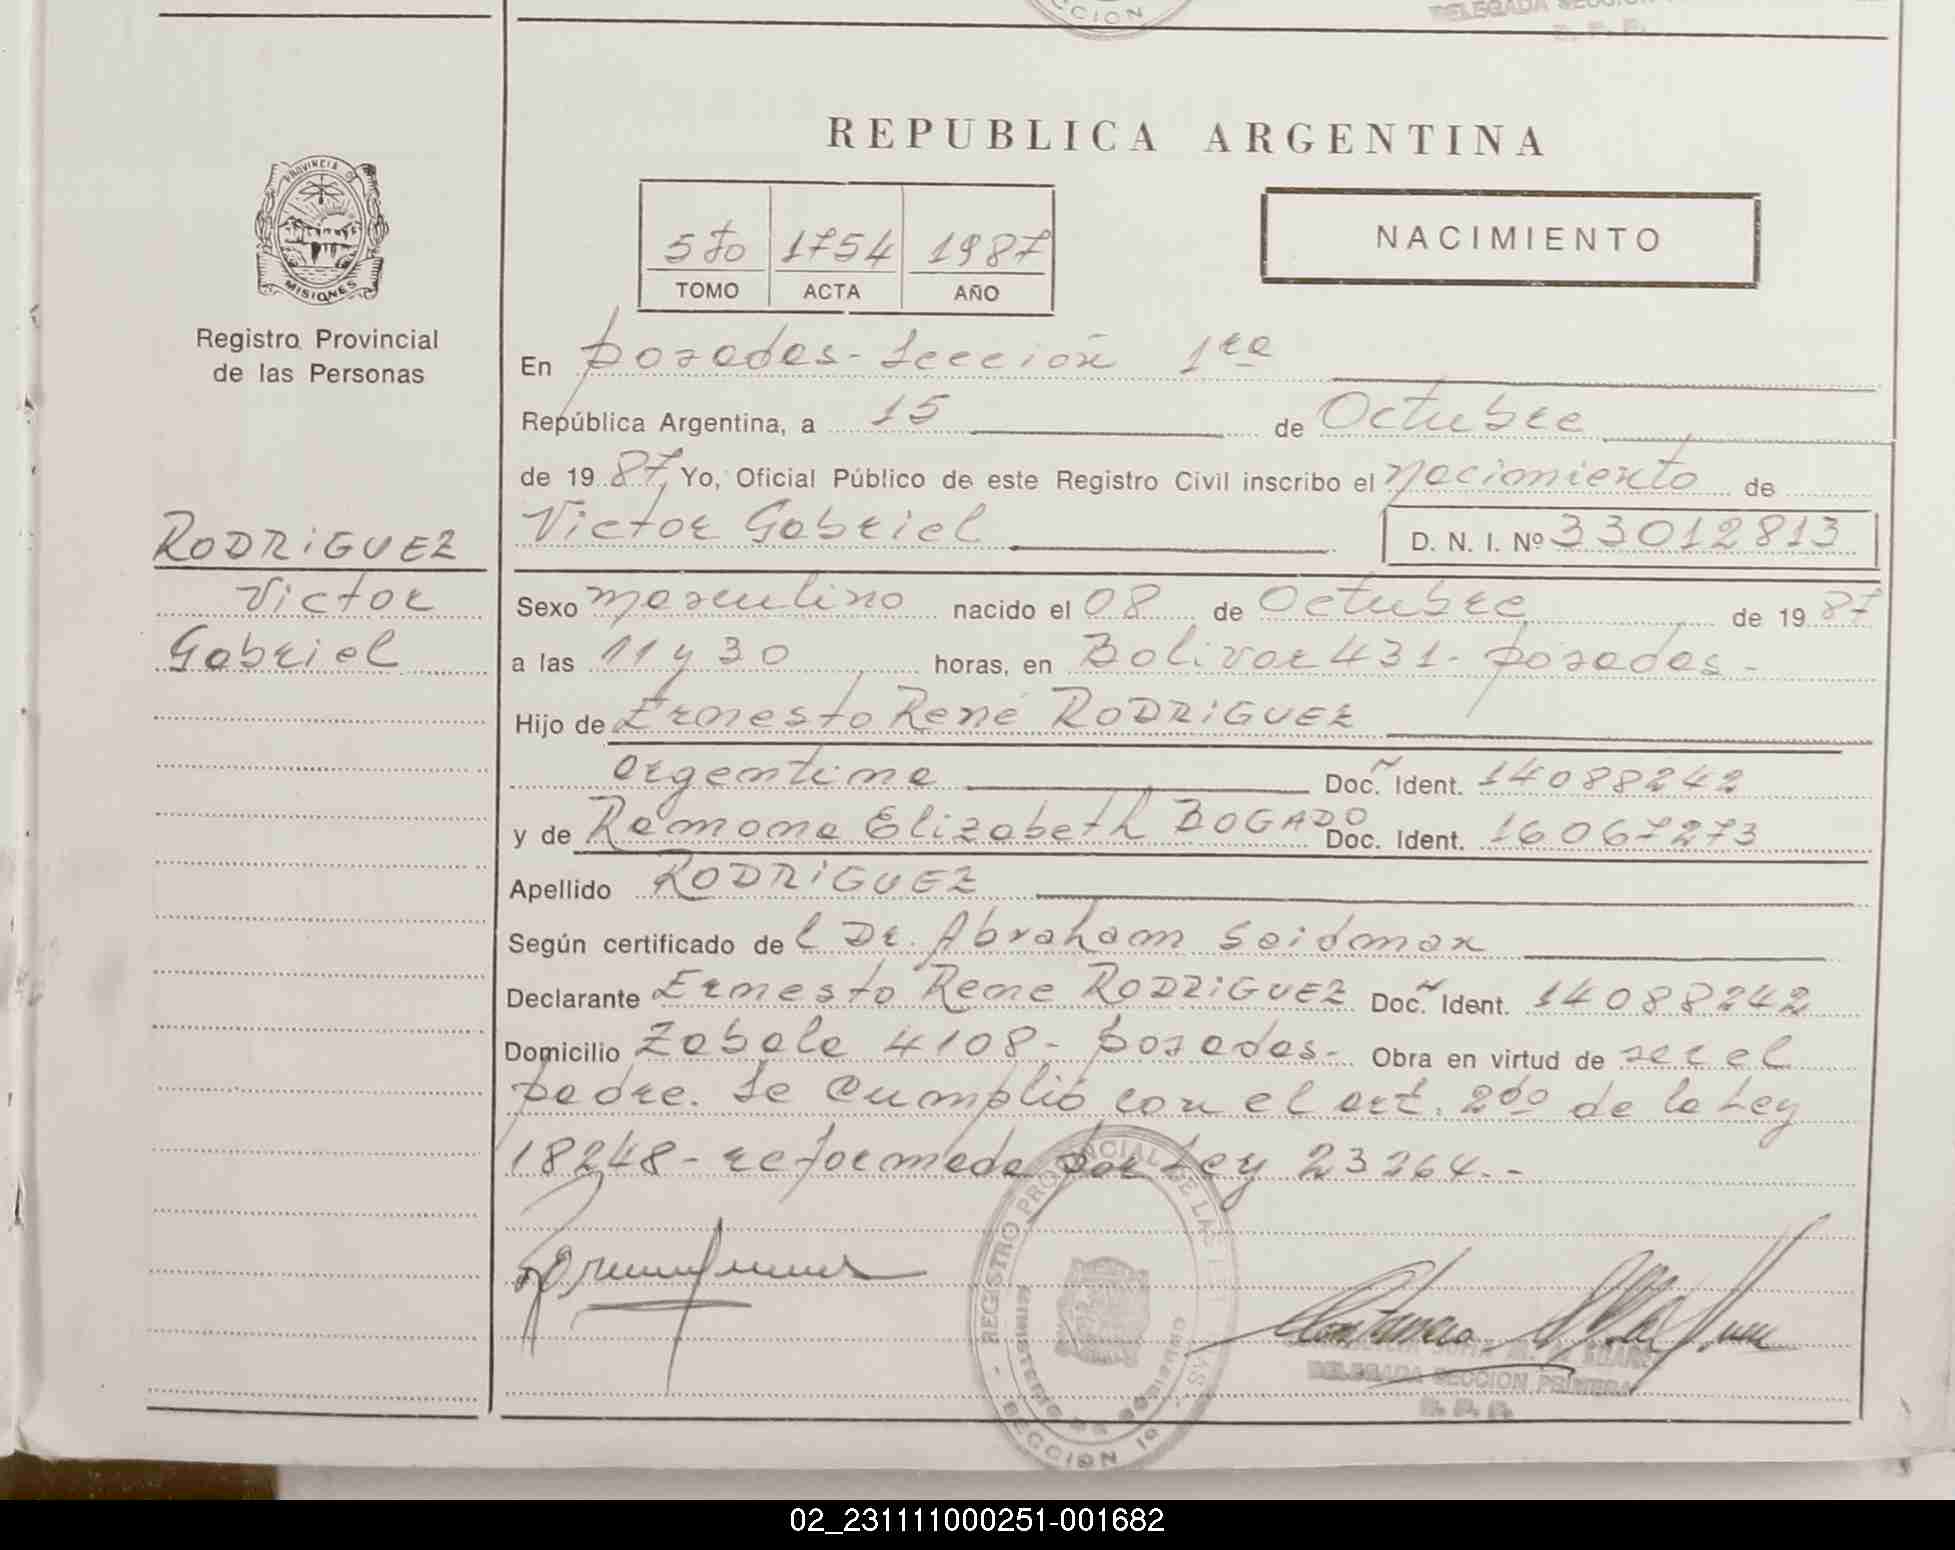 CCION
DELEGADA SECCION
R. P. P.
PROVINCIA DE
MISIONES
Registro Provincial
de las Personas
RODRiGUEZ
Victor
Gabriel
REPUBLICA ARGENTINA
5to 1754 1987
TOMO ACTA AÑO
NACIMIENTO
En posadas - Sección 1ra
República Argentina, a 15 de Octubre
de 19 87, Yo, Oficial Público de este Registro Civil inscribo el nacimiento de
Victor Gabriel D. N. I. Nº 33012813
Sexo masculino nacido el 08 de Octubre de 19 87
a las 11 y 30 horas, en Bolivar 431 - posadas -
Hijo de Ernesto René RODRiGUEZ
argentina Doc. Ident. 14088242
y de Ramona Elizabeth BOGADO Doc. Ident. 16067273
Apellido RODRiGUEZ
Según certificado de l Dr. Abraham Seidman
Declarante Ernesto Rene RODRiGUEZ Doc. Ident. 14088242
Domicilio Zabala 4108 - posadas - Obra en virtud de ser el
padre. Se cumplió con el art. 2do de la Ley
18248 - reformada por Ley 23264. -
REGISTRO PROVINCIAL DE LAS
SECCION 1º
DELEGADA SECCION PRIMERA
R. P. P.
02_231111000251-001682